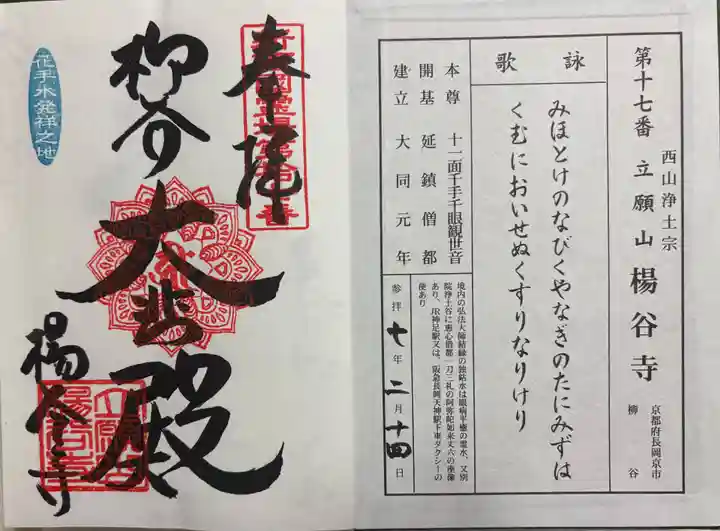 西山浄土宗
第十七番 立願山 楊谷寺
京都府長岡京市
柳谷
詠歌
みほとけのなびくやなぎのたにみずは
くむにおいせぬくすりなりけり
本尊 十一面千手千眼観世音
開基 延鎮僧都
建立 大同元年
境内の弘法大師結縁の独鈷水は眼病平癒の霊水、又別
院浄土谷に恵心僧都一刀三礼の阿弥陀如来丈六の座像
あり、JR神足駅又は、阪急長岡天神駅下車タクシーの
便あり
参拝 七年 二月 十四日
奉拝
柳谷
大悲殿
楊谷寺
花手水発祥之地